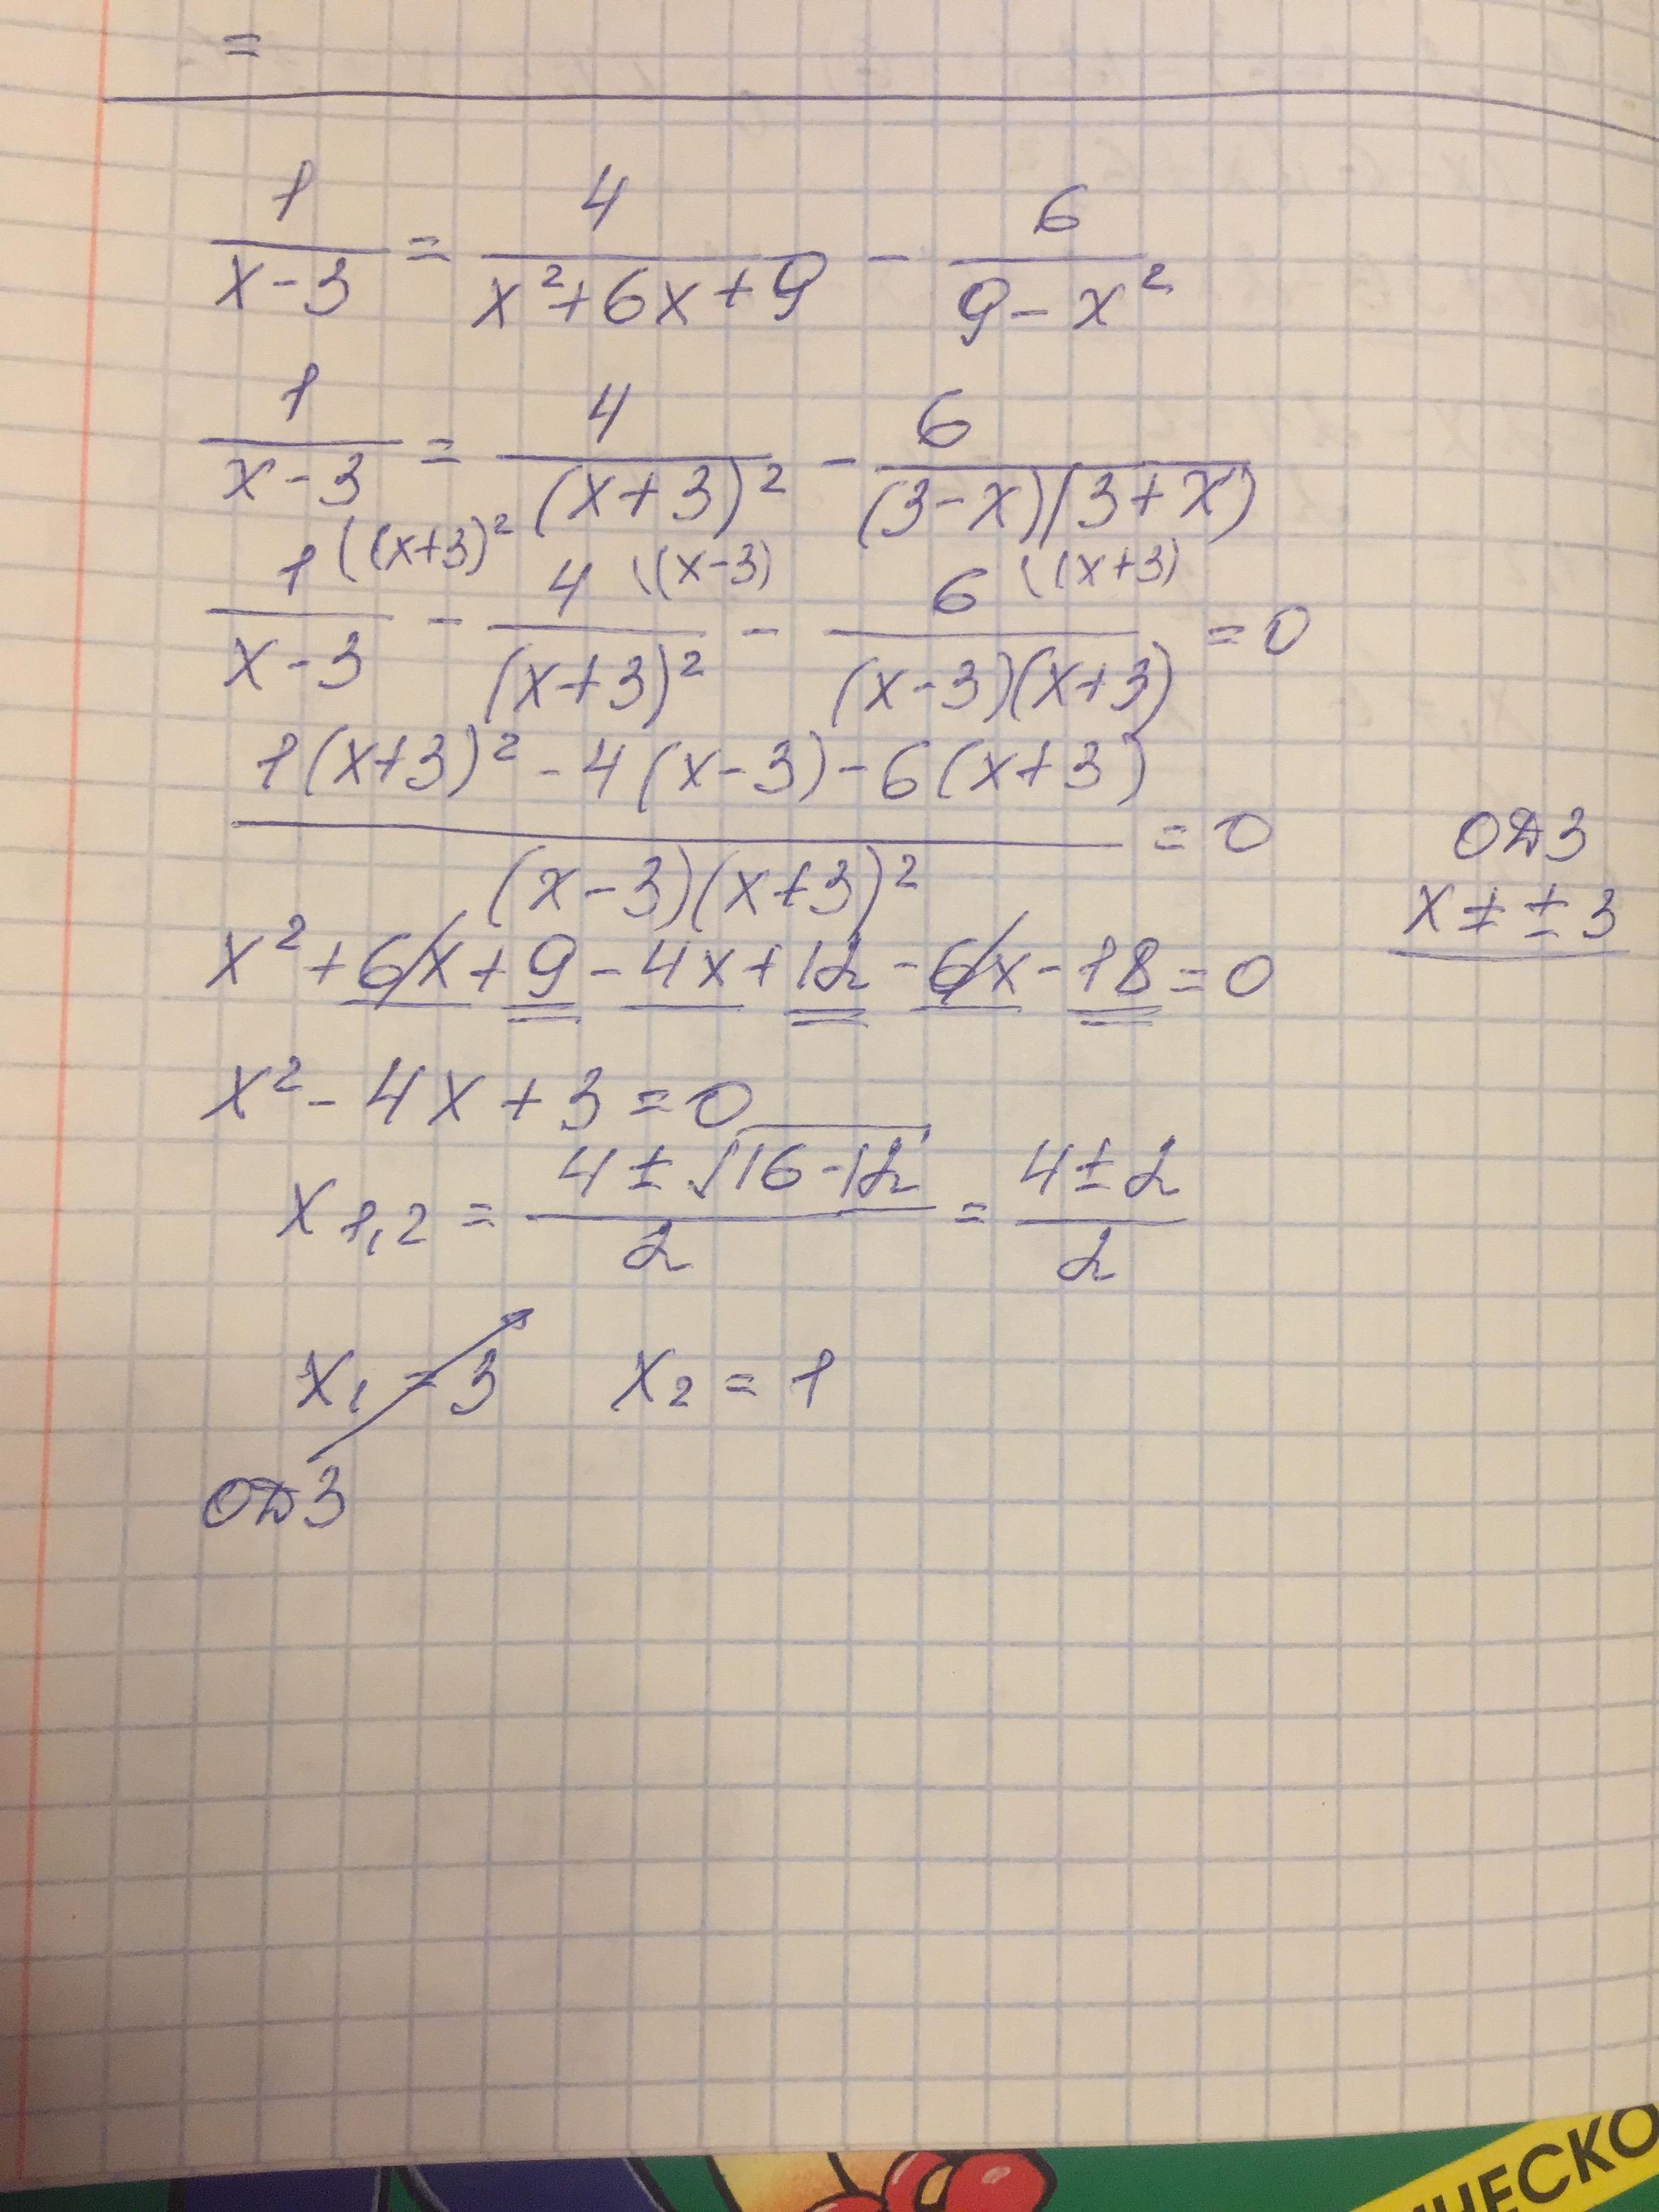 =
1/(x-3) = 4/(x²+6x+9) - 6/(9-x²)
1/(x-3) = 4/(x+3)² - 6/((3-x)(3+x))
1\((x+3)²/(x-3) - 4\(x-3)/(x+3)² - 6\(x+3)/((x-3)(x+3)) = 0
(1(x+3)² - 4(x-3) - 6(x+3))/((x-3)(x+3)²) = 0
ОДЗ
x ≠ ± 3
x² + 6x + 9 - 4x + 12 - 6x - 18 = 0
x² - 4x + 3 = 0
x1,2 = (4 ± √(16-12))/2 = (4 ± 2)/2
x1 = 3 x2 = 1
ОДЗ
ЧЕСКО